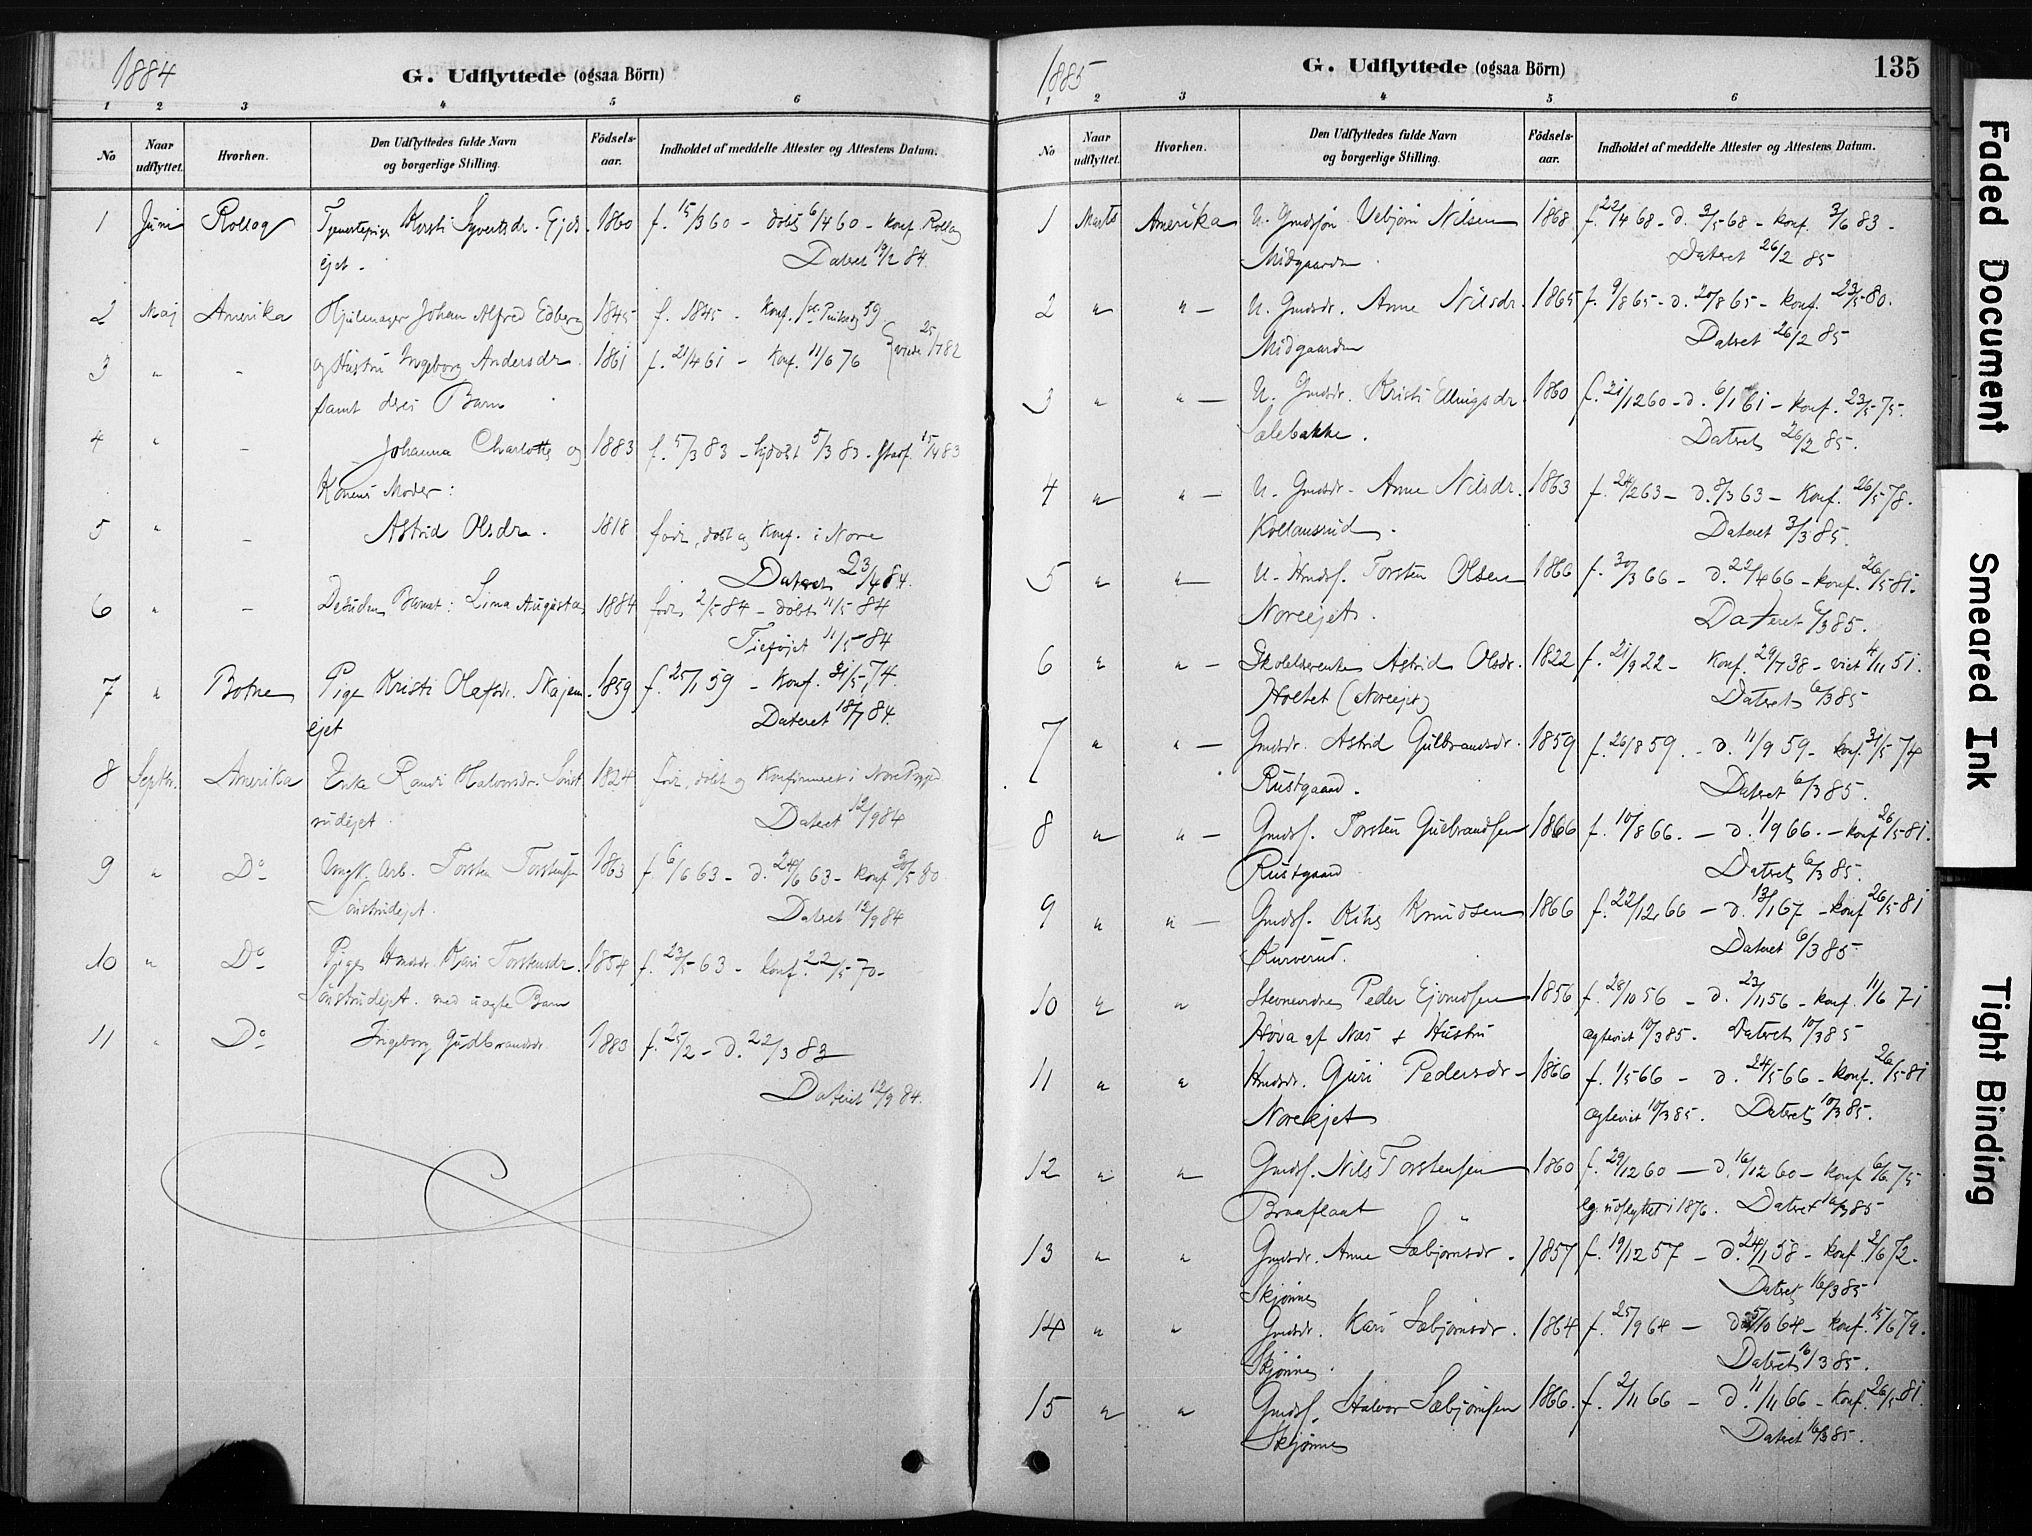 1884
G. Udflyttede (ogsaa Börn)
1 2 3 4 5 6
No
Naar udflyttet.
Hvorhen.
Den Udflyttedes fulde Navn og borgerlige Stilling.
Födsels-aar.
Indholdet af meddelte Attester og Attestens Datum.
1 Juni Rollag Tjenestepige Kirsti Syvertsdr. 1860 f. 15/3 60 - döbt 6/4 60 - Konf. Rollag
ejet - Dateret 19/2 84.
2 Maj Amerika Hjulmager Johan Alfred Edberg 1845 f. 1845 - Konf. 59
3 " - og Hustru Ingeborg Andersdr. 1861 f. 21/4 61 - Konf. 11/6 76 viede 25/7 82
samt deres Barn
4 " - Johanna Charlotte og 1883 f. 5/3 83 - hjdöbt 5/3 83 - stadf. 15/4 83
Konens Moder:
5 " - Astrid Olsdr. 1818 född, döbt og Konf. i Nore
Dateret 23/4 84.
6 " - Desuden Barnet: Lina Augusta 1884 född 2/5 84 - döbt 11/5 84
Tilföjet 11/5 84
7 " Botne Pige Kristi Olafsdr. 1859 f. 25/1 59 - Konf. 31/5 74.
ejet Dateret 18/7 84.
8 Septbr. Amerika Enke Randi Halvorsdr. 1824 född, döbt og Konfirmeret i Nore
rudejet. Dateret 12/9 84
9 " Do Ungk. Arb. Torsten Torstensen 1863 f. 6/6 63 - d. 24/6 63 - Konf. 30/5 80
Dateret 12/9 84
10 " Do Pige Kari Torstensdr. 1854 f. 23/5 63 - Konf. 22/5 70 -
med uægte Barn
11 " Do Ingeborg Gudbrandsdr. 1883 f. 25/2 - d. 22/3 83
Dateret 12/9 84.
1885
G. Udflyttede (ogsaa Börn)
135
1 2 3 4 5 6
No
Naar udflyttet.
Hvorhen.
Den Udflyttedes fulde Navn og borgerlige Stilling.
Födsels-aar.
Indholdet af meddelte Attester og Attestens Datum.
1 Marts Amerika U. Gmdssön Vebjörn Nilsen 1868 f. 22/4 68 - d. 3/5 68 - Konf. 3/6 83 -
Midgaarden Dateret 26/2 85
2 " " - U. Gmdsdr. Anne Nilsdr. 1865 f. 9/8 65 - d. 20/8 65 - Konf. 23/5 80.
Midgaarden Dateret 26/2 85
3 " " - U. Gmdsdr. Kristi Ellingsdr. 1860 f. 21/12 60 - d. 6/1 61 - Konf. 23/5 75.
Salebakke. Dateret 26/2 85.
4 " " - U. Gmdsdr. Anne Nilsdr. 1863 f. 24/2 63 - d. 8/3 63 - Konf. 26/5 78.
Kollansrud. Dateret 3/3 85.
5 " " - U. Hmdsf. Torsten Olsen 1866 f. 30/3 66 - d. 22/4 66 - Konf. 26/5 81.
Noreejet. Dateret 6/3 85.
6 " " - Astrid Olsdr. 1822 f. 21/9 22 - Konf. 29/7 38 - viet 4/11 51.
Holtet (Noreejet) Dateret 6/3 85
7 " " - Gmdsdr. Astrid Gulbrandsdr. 1859 f. 26/8 59. - d. 11/9 59 - Konf. 31/5 74
Rustgaard. Dateret 6/3 85.
8 " " - Gmdsf. Torsten Gulbrandsen 1866 f. 10/8 66. - d. 1/9 66. - Konf 26/5 81.
Rustgaard Dateret 6/3 85.
9 " " - Gmdsf. Kitil Knudsen 1866 f. 22/12 66 - d. 13/1 67 - Konf 26/5 81
Kurverud. Dateret 6/3 85
10 " " Peder Ejvindsen 1856 f. 28/10 56 - d. 23/11 56 - Konf. 11/6 71
Hova af Næs + Hustru ægteviet 10/3 85. Dateret 10/3 85
11 " " Hmdsdr. Guri Pedersdr - 1866 f. 1/5 66 - d. 24/5 66 - Konf. 26/5 81
Noreejet ægteviet 10/3 85. Dateret 10/3 85.
12 " " Gmdsf. Nils Torstensen 1860 f. 29/12 60 - d. 16/12 60 - Konf 6/6 75
Braaflaat udflyttet i 1876. Dateret 16/3 85
13 " " Gmdsdr. Anne Sæbjörnsdr. 1857 f. 19/12 57 - d. 24/1 58 - Konf. 2/6 72.
Skjönne Dateret 16/3 85
14 " " Gmdsdr. Kari Sæbjörnsdr. 1864 f. 25/9 64 - d. 5/10 64 - Konf. 15/6 79.
Skjönne. Dateret 16/3 85.
15 " " Gmdsf. Halvor Sæbjörnsen 1866. f. 2/11 66 - d. 11/11 66 - Konf. 26/5 81.
Skjönne Dateret 16/3 85.
Faded Document
Smeared Ink
Tight Binding